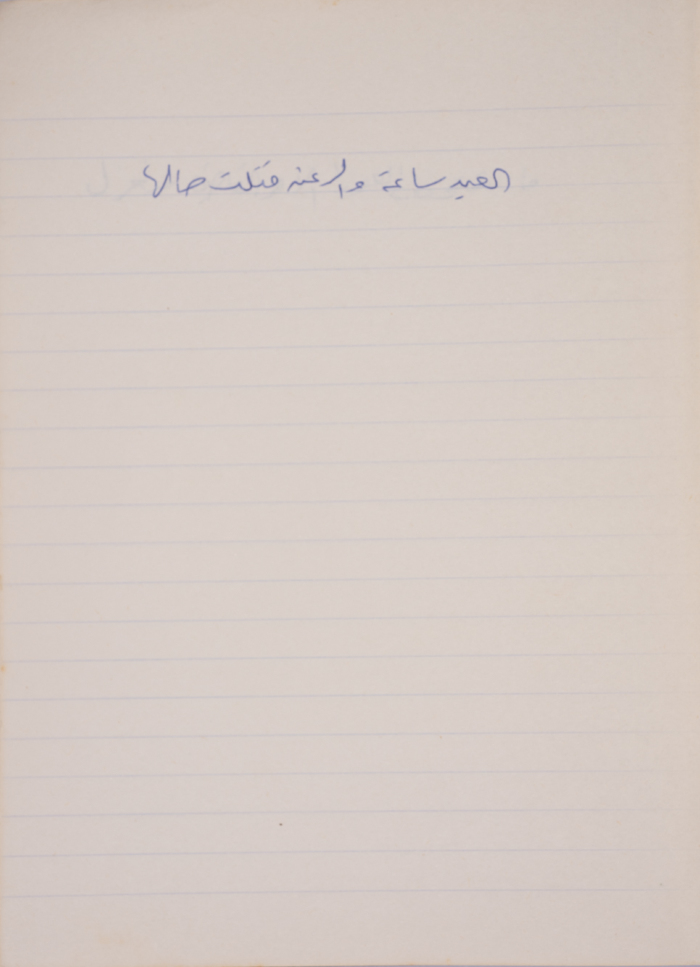 العيد ساعة والرعنه قتلت حالها